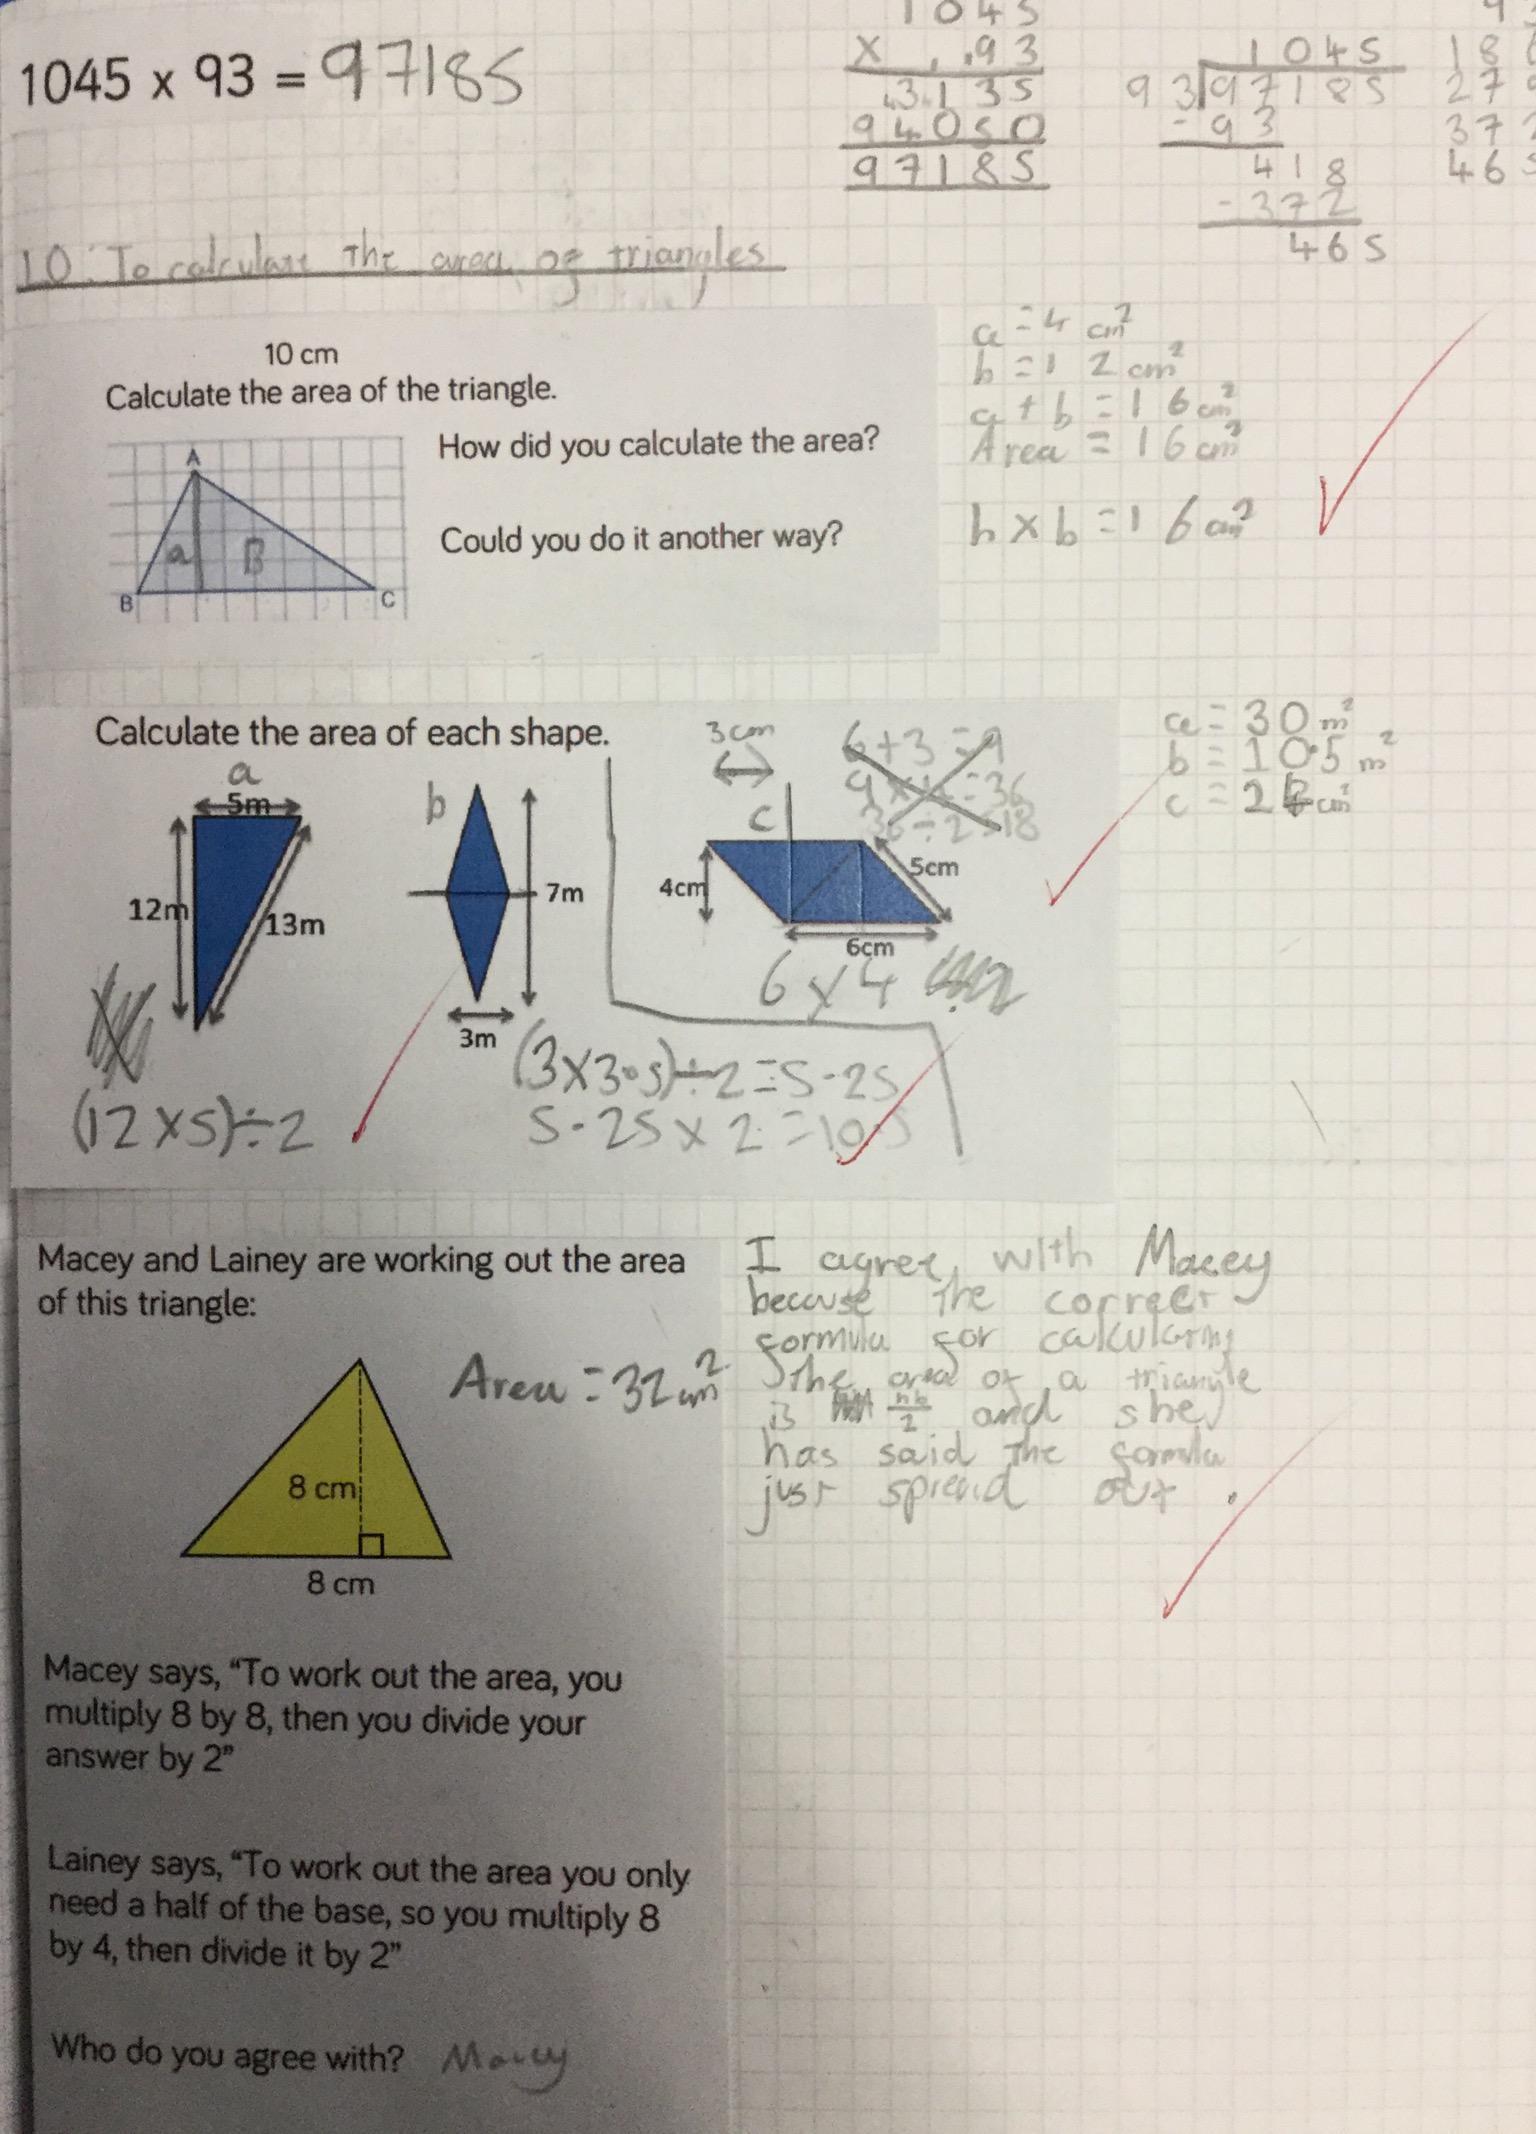 1045 x 93 = 97185
1045
x 93
3135
94050
97185
1045
93 97185
- 93
418
- 372
465
LO: To calculate the area of triangles
10 cm
Calculate the area of the triangle.
A
a
B
B
C
How did you calculate the area?
Could you do it another way?
a = 4 cm²
b = 12 cm²
a + b = 16 cm²
Area = 16 cm²
h x b = 16 cm²
Calculate the area of each shape.
a
5m
12m
13m
(12 x 5) ÷ 2
b
7m
3m
(3 x 3.5) ÷ 2 = 5.25
5.25 x 2 = 10.5
3cm
6 + 3 = 9
9 x 4 = 36
36 ÷ 2 = 18
c
4cm
5cm
6cm
6 x 4
a = 30 m²
b = 10.5 m²
c = 24 cm²
Macey and Lainey are working out the area
of this triangle:
Area = 32 cm²
8 cm
8 cm
I agree with Macey
because the correct
formula for calculating
the area of a triangle
is hb/2 and she
has said the formula
just spread out.
Macey says, “To work out the area, you
multiply 8 by 8, then you divide your
answer by 2”
Lainey says, “To work out the area you only
need a half of the base, so you multiply 8
by 4, then divide it by 2”
Who do you agree with? Macey